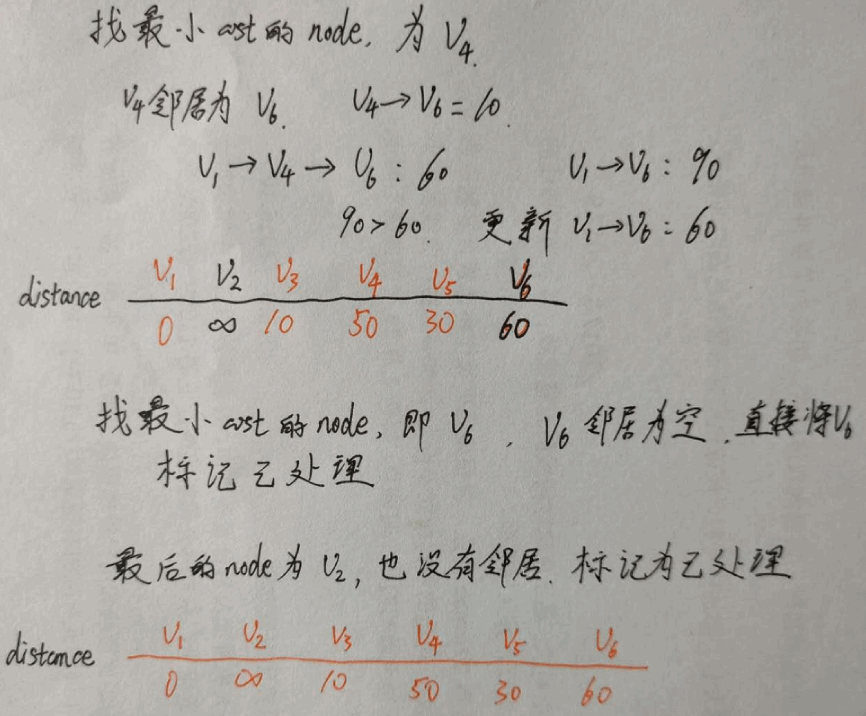 找最小cost的node, 为V4.
V4邻居为 V6. V4→V6=10.
V1→V4→V6:60 V1→V6:90
90>60. 更新 V1→V6:60
V1 V2 V3 V4 V5 V6
distance
0 ∞ 10 50 30 60
找最小cost的node, 即V6, V6邻居为空.直接将V6
标记已处理
最后的node为V2,也没有邻居.标记为已处理
V1 V2 V3 V4 V5 V6
distance
0 ∞ 10 50 30 60